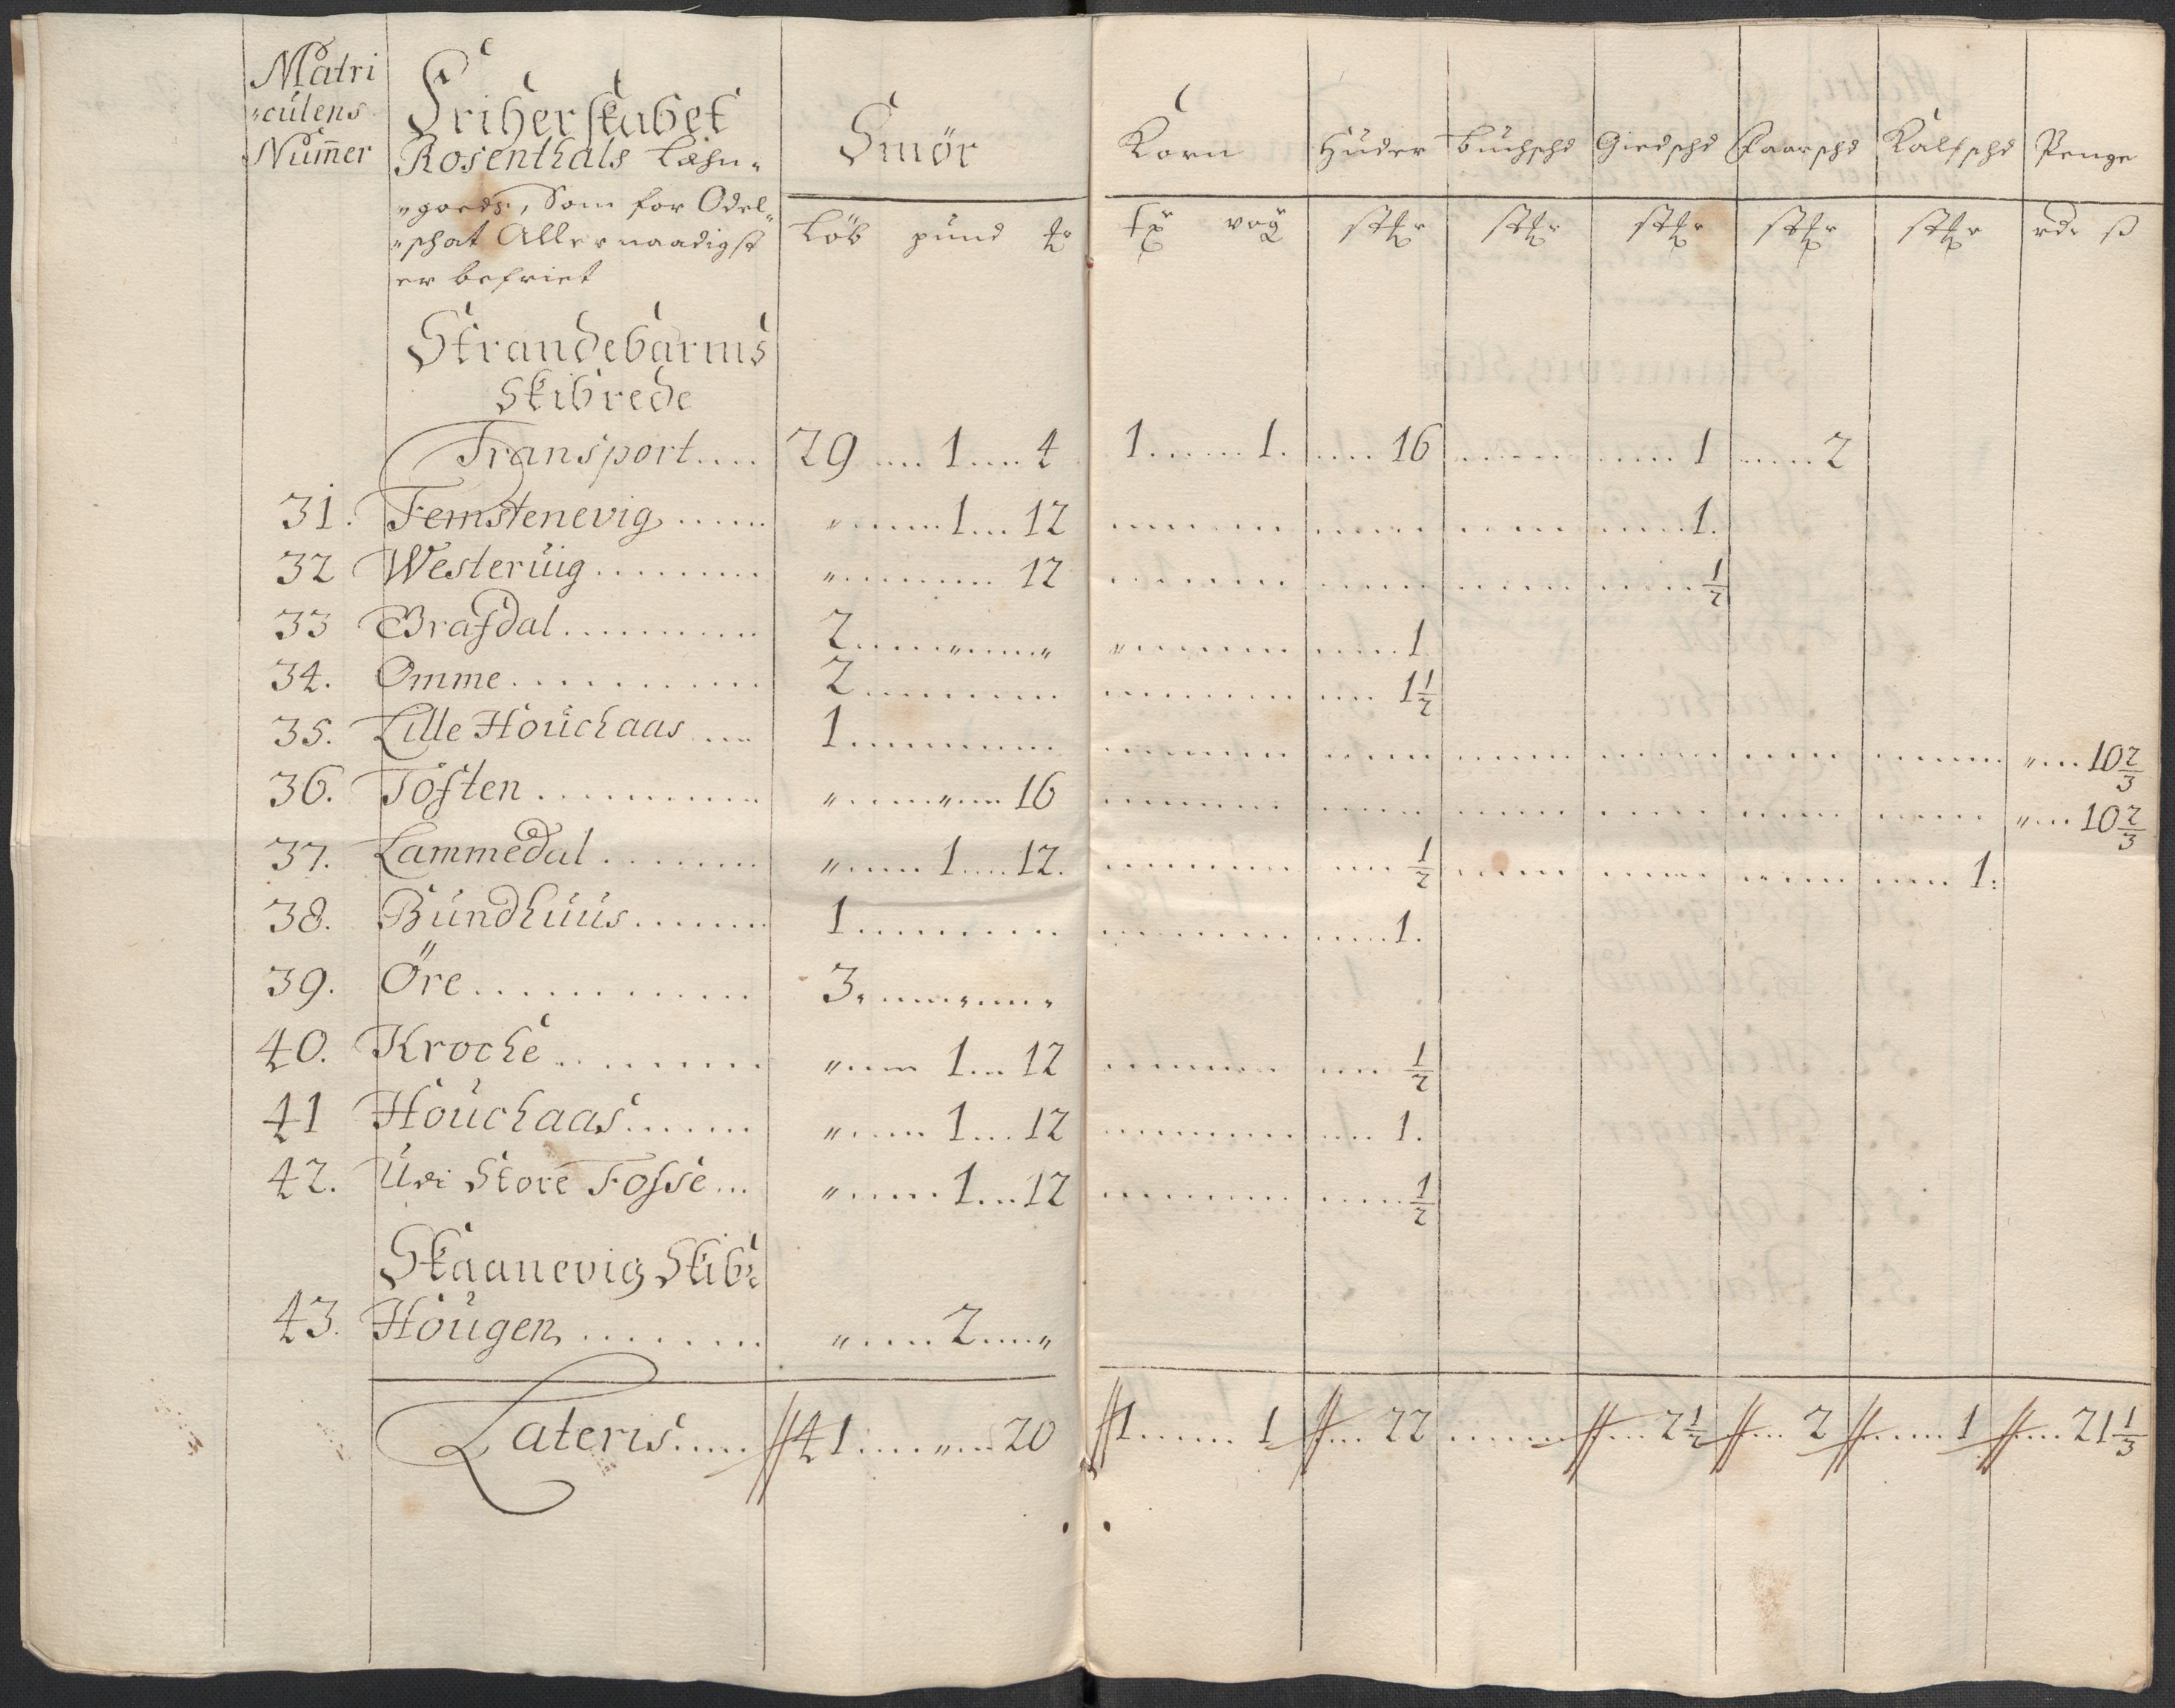 Matri
"culens
Num̄er
Friherskabet
Rosenthals Læhn"
"goeds, Som for Odel"
"schat Allernaadigst
er befriet
Smör
Korn
Huder
buchschd
Giedschd
Faarschd
Kalfschd
Penge
Löb pund
vog
rdr ß
Strandebarms
Skibrede
Transport.... 29 .... 1 .... 4 1 ...... 1. .... 16 ...... 1 .... 2
31. Femstenevig ...... " ..... 1 ... 12 ...... 1.
32 Westeruig ......... " ......... 12 ...... 1/2
33 Brasdal .......... 2 ..... " ..... " " ...... 1
34. Omme ........... 2 ......... 1 1/2
35. Lille Houchaas .... 1 ......... " ... 10 2/3
36. Tosten .......... " ..... " ... 16 ...... " ... 10 2/3
37. Lammedal ........ " ..... 1 .... 12. ...... 1/2 ...... 1:
38. Bundhuus ....... 1 .......... 1.
39. Öre ............ 3. ..... " ..... "
40. Kroche ......... " .... 1 ... 12 ...... 1/2
41 Houchaas ....... " ..... 1 ... 12 ...... 1.
42. Udi Store Fosse ... " ..... 1 ... 12 ...... 1/2
Skaanevig Skibr
43. Hougen ........ " ..... 2 .... "
Lateris ..... 41 .... " ... 20 1 ...... 1 ... 22 ...... 2 1/2 ... 2 ..... 1 ... 21 1/3